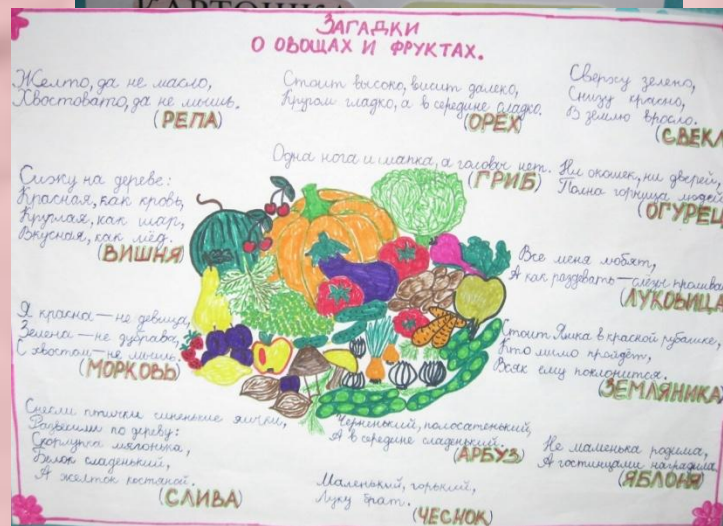 КАРТОШКА
ЗАГАДКИ
О ОВОЩАХ И ФРУКТАХ.
Желто, да не масло,
Хвостовато, да не мышь.
(РЕПА)
Стоит высоко, висит далеко,
Кругом гладко, а в середине сладко.
(ОРЕХ)
Сверху зелено,
Снизу красно,
В землю вросло.
(СВЕКЛ
Одна нога и шапка, а головы нет.
(ГРИБ)
Ни окошек, ни дверей,
Полна горница людей
(ОГУРЕЦ
Сижу на дереве:
Красная, как кровь,
Круглая, как шар,
Вкусная, как мёд.
(ВИШНЯ)
Все меня любят,
А как раздевать – слёзы пролива
(ЛУКОВИЦА
Я красна – не девица,
Зелена – не дубрава,
С хвостом – не мышь.
(МОРКОВЬ)
Стоит Яшка в красной рубашке,
Кто мимо пройдёт,
Всяк ему поклонится.
(ЗЕМЛЯНИКА)
Снесли птички синенькие яички,
Развешали по дереву:
Скорлупка мяконька,
Белок сладенький,
А желток костяной.
(СЛИВА)
Черненький, полосатенький,
А в середине сладенький.
(АРБУЗ)
Не маменька родима,
А гостинцами наградила
(ЯБЛОНЯ)
Маленький, горький,
Луку брат.
(ЧЕСНОК)